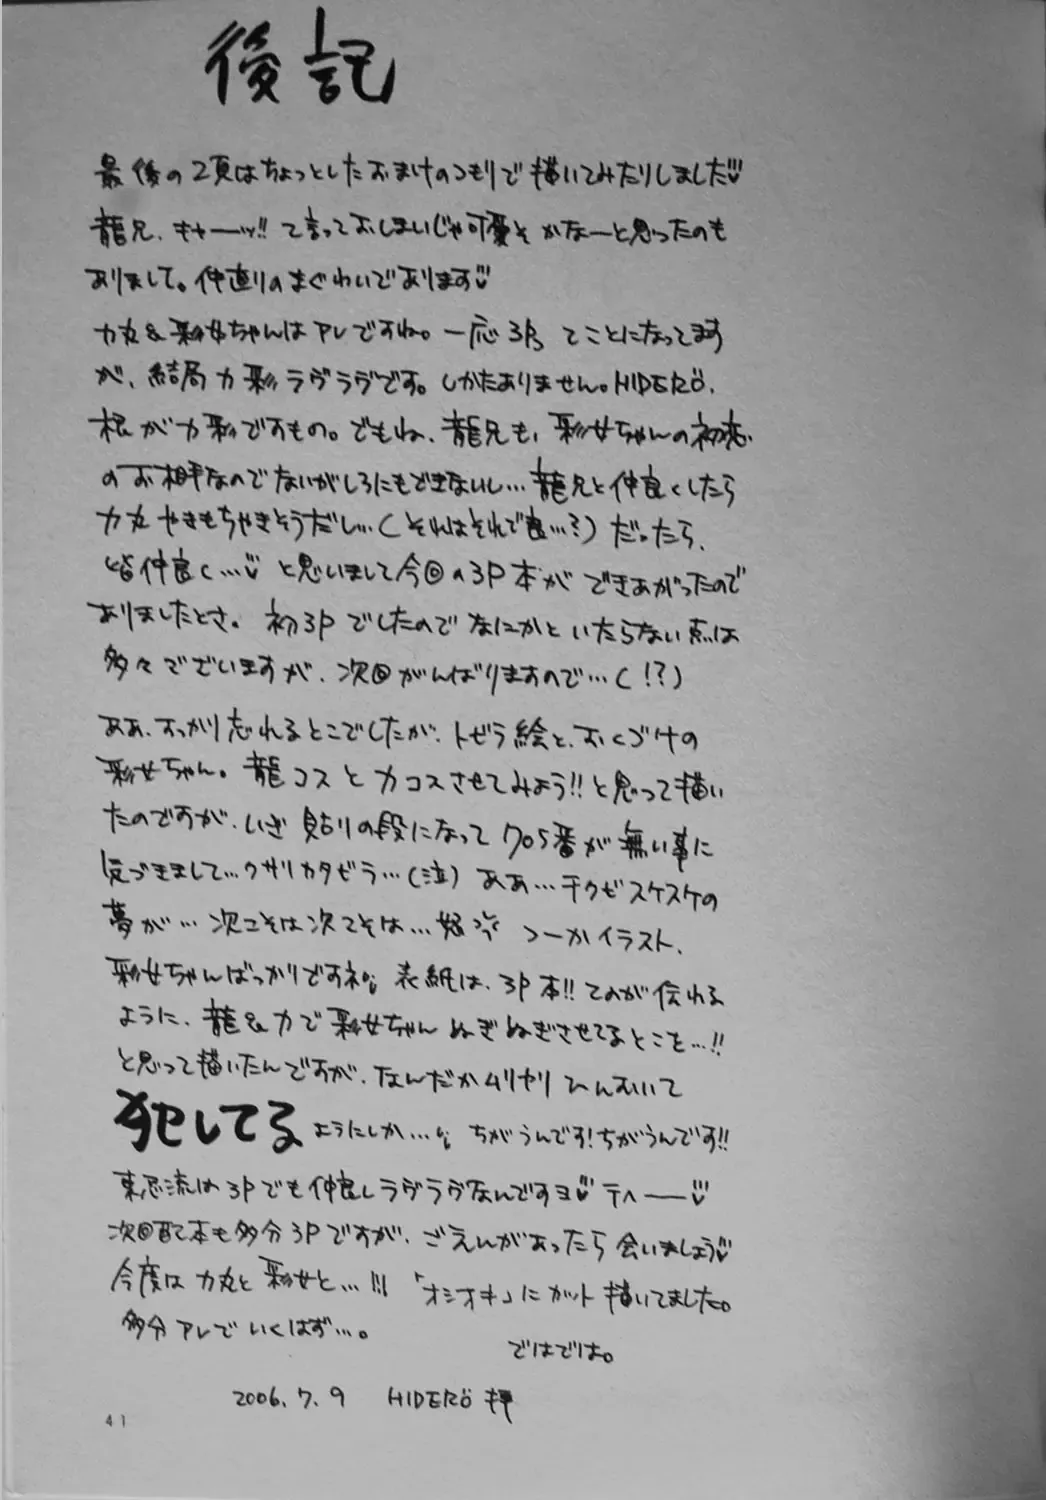 後記
最後の2頁はちょっとしたおまけのつもりで描いてみたりしました
龍兄、キャーッ!!て言っておしまいじゃ可愛そかなーと思ったのも
ありまして。仲直りのまぐわいであります
力丸&彩女ちゃんはアレですね。一応3Pってことになってます
が、結局力彩ラヴラヴです。しかたありません。HIDERÖ、
根が力彩ですもの。でもね、龍兄も、彩女ちゃんの初恋
のお相手なのでないがしろにもできないし…龍兄と仲良くしたら
力丸やきもちやきそうだし…(それはそれで良…?)だったら、
皆仲良く…と思いまして今回の3P本ができあがったので
ありましたとさ。初3Pでしたのでなにかといたらない点は
多々でございますが、次回がんばりますので…(!?)
ああ、すっかり忘れるとこでしたが、トビラ絵と、おくづけの
彩女ちゃん。龍コスと力コスさせてみよう!!と思って描い
たのですが、いざ貼りの段になって705番が無い事に
気づきまして…クサリカタビラ…(泣)ああ…チクビスケスケの
夢が…次こそは次こそは…怒 つーかイラスト、
彩女ちゃんばっかりですネ 表紙は、3P本!!てのが伝わる
ように、龍&力で彩女ちゃんぬぎぬぎさせてるとこを…!!
と思って描いたんですが、なんだかムリヤリひんむいて
犯してるようにしか… ちがうんです!ちがうんです!!
東忍流は3Pでも仲良しラヴラヴなんですヨ テヘーー
次回配本も多分3Pですが、ごえんがあったら会いましょう
今度は力丸と彩女と…!!!「オシオキ」にカット描いてました。
多分アレでいくはず…。
ではでは。
2006.7.9 HIDERÖ 拝
41